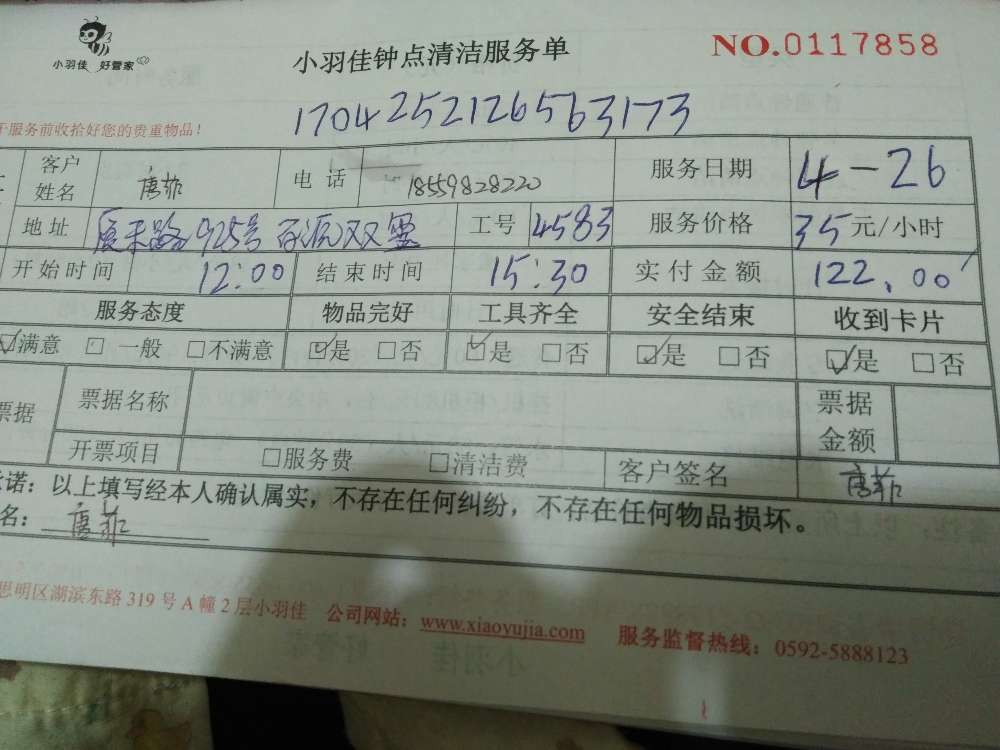 小羽佳 好管家
小羽佳钟点清洁服务单
NO.0117858
17042521265563173
于服务前收拾好您的贵重物品！
客户姓名 唐菲 电话 18559828220 服务日期 4-26
地址 厦禾路925号 双 工号 4583 服务价格 35元/小时
开始时间 12:00 结束时间 15:30 实付金额 122.00
服务态度 物品完好 工具齐全 安全结束 收到卡片
☑满意 □一般 □不满意 ☑是 □否 ☑是 □否 ☑是 □否 ☑是 □否
票据 票据名称 票据金额
开票项目 □服务费 □清洁费 客户签名 唐菲
诺：以上填写经本人确认属实，不存在任何纠纷，不存在任何物品损坏。
名：唐菲
思明区湖滨东路319号A幢2层小羽佳 公司网站：www.xiaoyujia.com 服务监督热线：0592-5888123